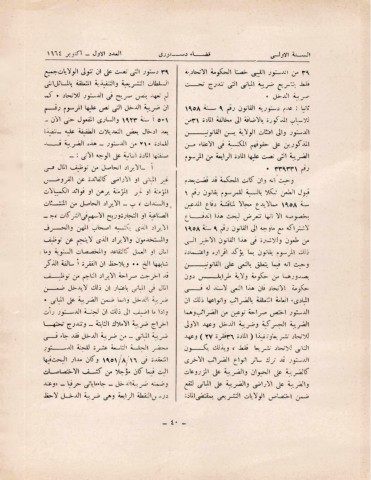 السنة الاولى
قضاء دستوري
العدد الاول ـ أكتوبر ١٩٦٤
٣٦ من الدستور الليبي خصتا الحكومة الاتحادية
فقط بتشريع ضريبة المباني التي تندرج تحت
ضريبة الدخل .
ثانيا : عدم دستورية القانون رقم ٩ سنة ١٩٥٨
للاسباب المذكورة بالاضافة الى مخالفة المادة ٣١
من الدستور والى افتئات الولاية بين القانونين
المذكورين على حقوقهم المكتسبة في الاعفاء من
الضريبة التي نصت عليها المادة الرابعة من المرسوم
وحيث انه وان كانت المحكمة قد قضت بعدم
قبول الطعن شكلا بالنسبة للمرسوم بقانون رقم ١
سنة ١٩٥٨ مما لا يدع مجالا لمناقشة دفاع
بخصوصه الا انها تتعرض لبحث هذا الدفاع
لاشتراكه مع ماوجه الى القانون رقم ٩ سنة ١٩٥٨
من طعون والاشارة في هذا القانون الاخير الى
المرسوم بقانون بما يؤكد اقراره واعتماده
وحيث انه فيما يتعلق بالنعي على القانونين
بصدورهما من حكومة ولاية طرابلس دون
حكومة الاتحاد فان هذا النعي لا سند له في
المبادىء العامة المتعلقة بالضرائب وانواعها ذلك ان
الدستور اختص صراحة نوعين من الضرائب وهما
الضريبة الجمركية وضريبة الدخل وعهد الاولى
للاتحاد تشريعا وتنفيذا ( المادة ٣٦ فقرة ٢٧ ) وعهد
الثاني للاتحاد تشريعا فقط » وبذلك يكون
الدستور قد ترك سائر انواع الضرائب الاخرى
كالضرائب على الحيوان والضريبة على المزروعات
والضريبة على الاراضي والضريبة على المباني لتقع
ضمن اختصاص الولايات التشريعي بمقتضى المادة
٣٩ دستور التي نصت على ان تتولى الولايات جميع
السلطات التشريعية والتنفيذية المتعلقة بالمسائل التي
لم يعهد بها بنص صريح في الدستور للاتحاد كما
ان ضريبة الدخل التي نص عليها المرسوم رقم
٥٠١ سنة ١٩٢٣ والساري المفعول حتى الآن ـ
بعد ادخال بعض التعديلات الطفيفة عليه ـ تنفيذا
للمادة ٢١٠ من الدستور ـ هذه الضريبة قد
صنفتها المادة الثانية على الوجه الآتي :ـ
أ ـ الايراد الحاصل من توظيف المال في
غير المباني او الاراضي كفائدة القروض
المؤمنة او غير المؤمنة برهن او فوائد الكمبيالات
والسندات » ب ـ الايراد الحاصل من المنشئات
الصناعية او التجارية وتوزيع الاسهم في الشركات » جـ ـ
الايراد الذي يكسبه اصحاب المهن والحرف
والمستخدمون والايراد الذي يتحصل من توظيف
المال او العمل كالمكافآت المخصصة السنوية وما
شابهها الخ »» ويلاحظ ان الفقرة أ سالفة الذكر
قد اخرجت صراحة الايراد الناتج من توظيف
المال في المباني بمعنى ان ذلك لايدخل ضمن
ضريبة الدخل وانما ضمن ضريبة على المباني »
واذا ما اضيف الى ذلك ان لجنة الدستور رأت
اخراج ضريبة الاملاك الثابتة ـ وتندرج تحتها
ضريبة المباني ـ من ضريبة الدخل فقد جاء في
محضر الجلسة التاسعة عشرة للجنة الدستور
المنعقدة في ١٦/ ٨/ ١٩٥١ وكان مدار البحث فيها
البت فيما كان مؤجلا من كشف الاختصاصات
وضمنه ضريبة الدخل ـ جاء مايأتي حرفيا » وعند
درس النقطة الرابعة وهي ضريبة الدخل لاحظ
ـ ٤٠ ـ